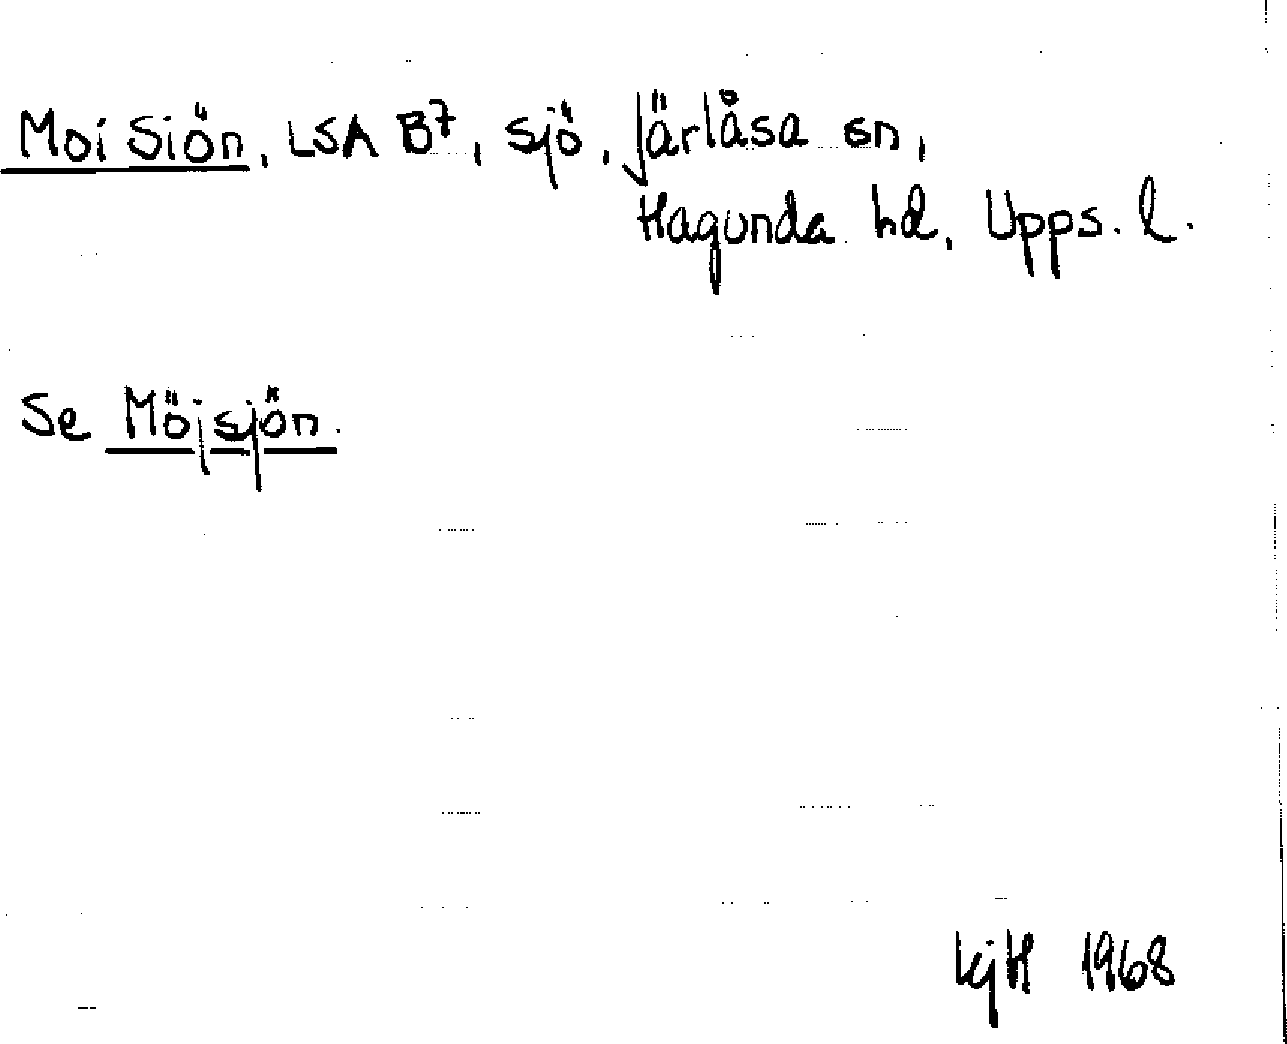 Moi Siön, LSA B7, sjö, Järlåsa sn,
Hagunda hd, Upps. l.
Se Möjsjön.
kjH 1968